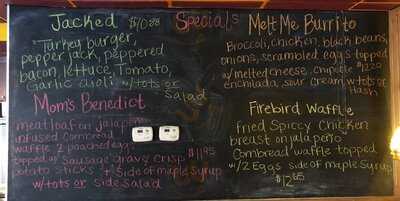 Specials
Jacked $10.88
Turkey burger,
pepper jack, peppered
bacon, lettuce, Tomato,
Garlic aioli w/tots or
Salad
Mom's Benedict
meatloaf on jalapeño
infused cornbread
waffle 2 poached eggs
topped w/ Sausage gravy crisp $11.95
potato sticks + side of maple syrup
w/tots or side salad
Melt Me Burrito
Broccoli, chicken, black beans,
onions, scrambled eggs topped
w/melted cheese, chipotle
enchilada, sour cream w/tots or
Hash
Firebird Waffle
fried Spiccy Chicken
breast on jalapeño
Cornbread waffle topped
w/2 Eggs side of maple syrup
$12.85